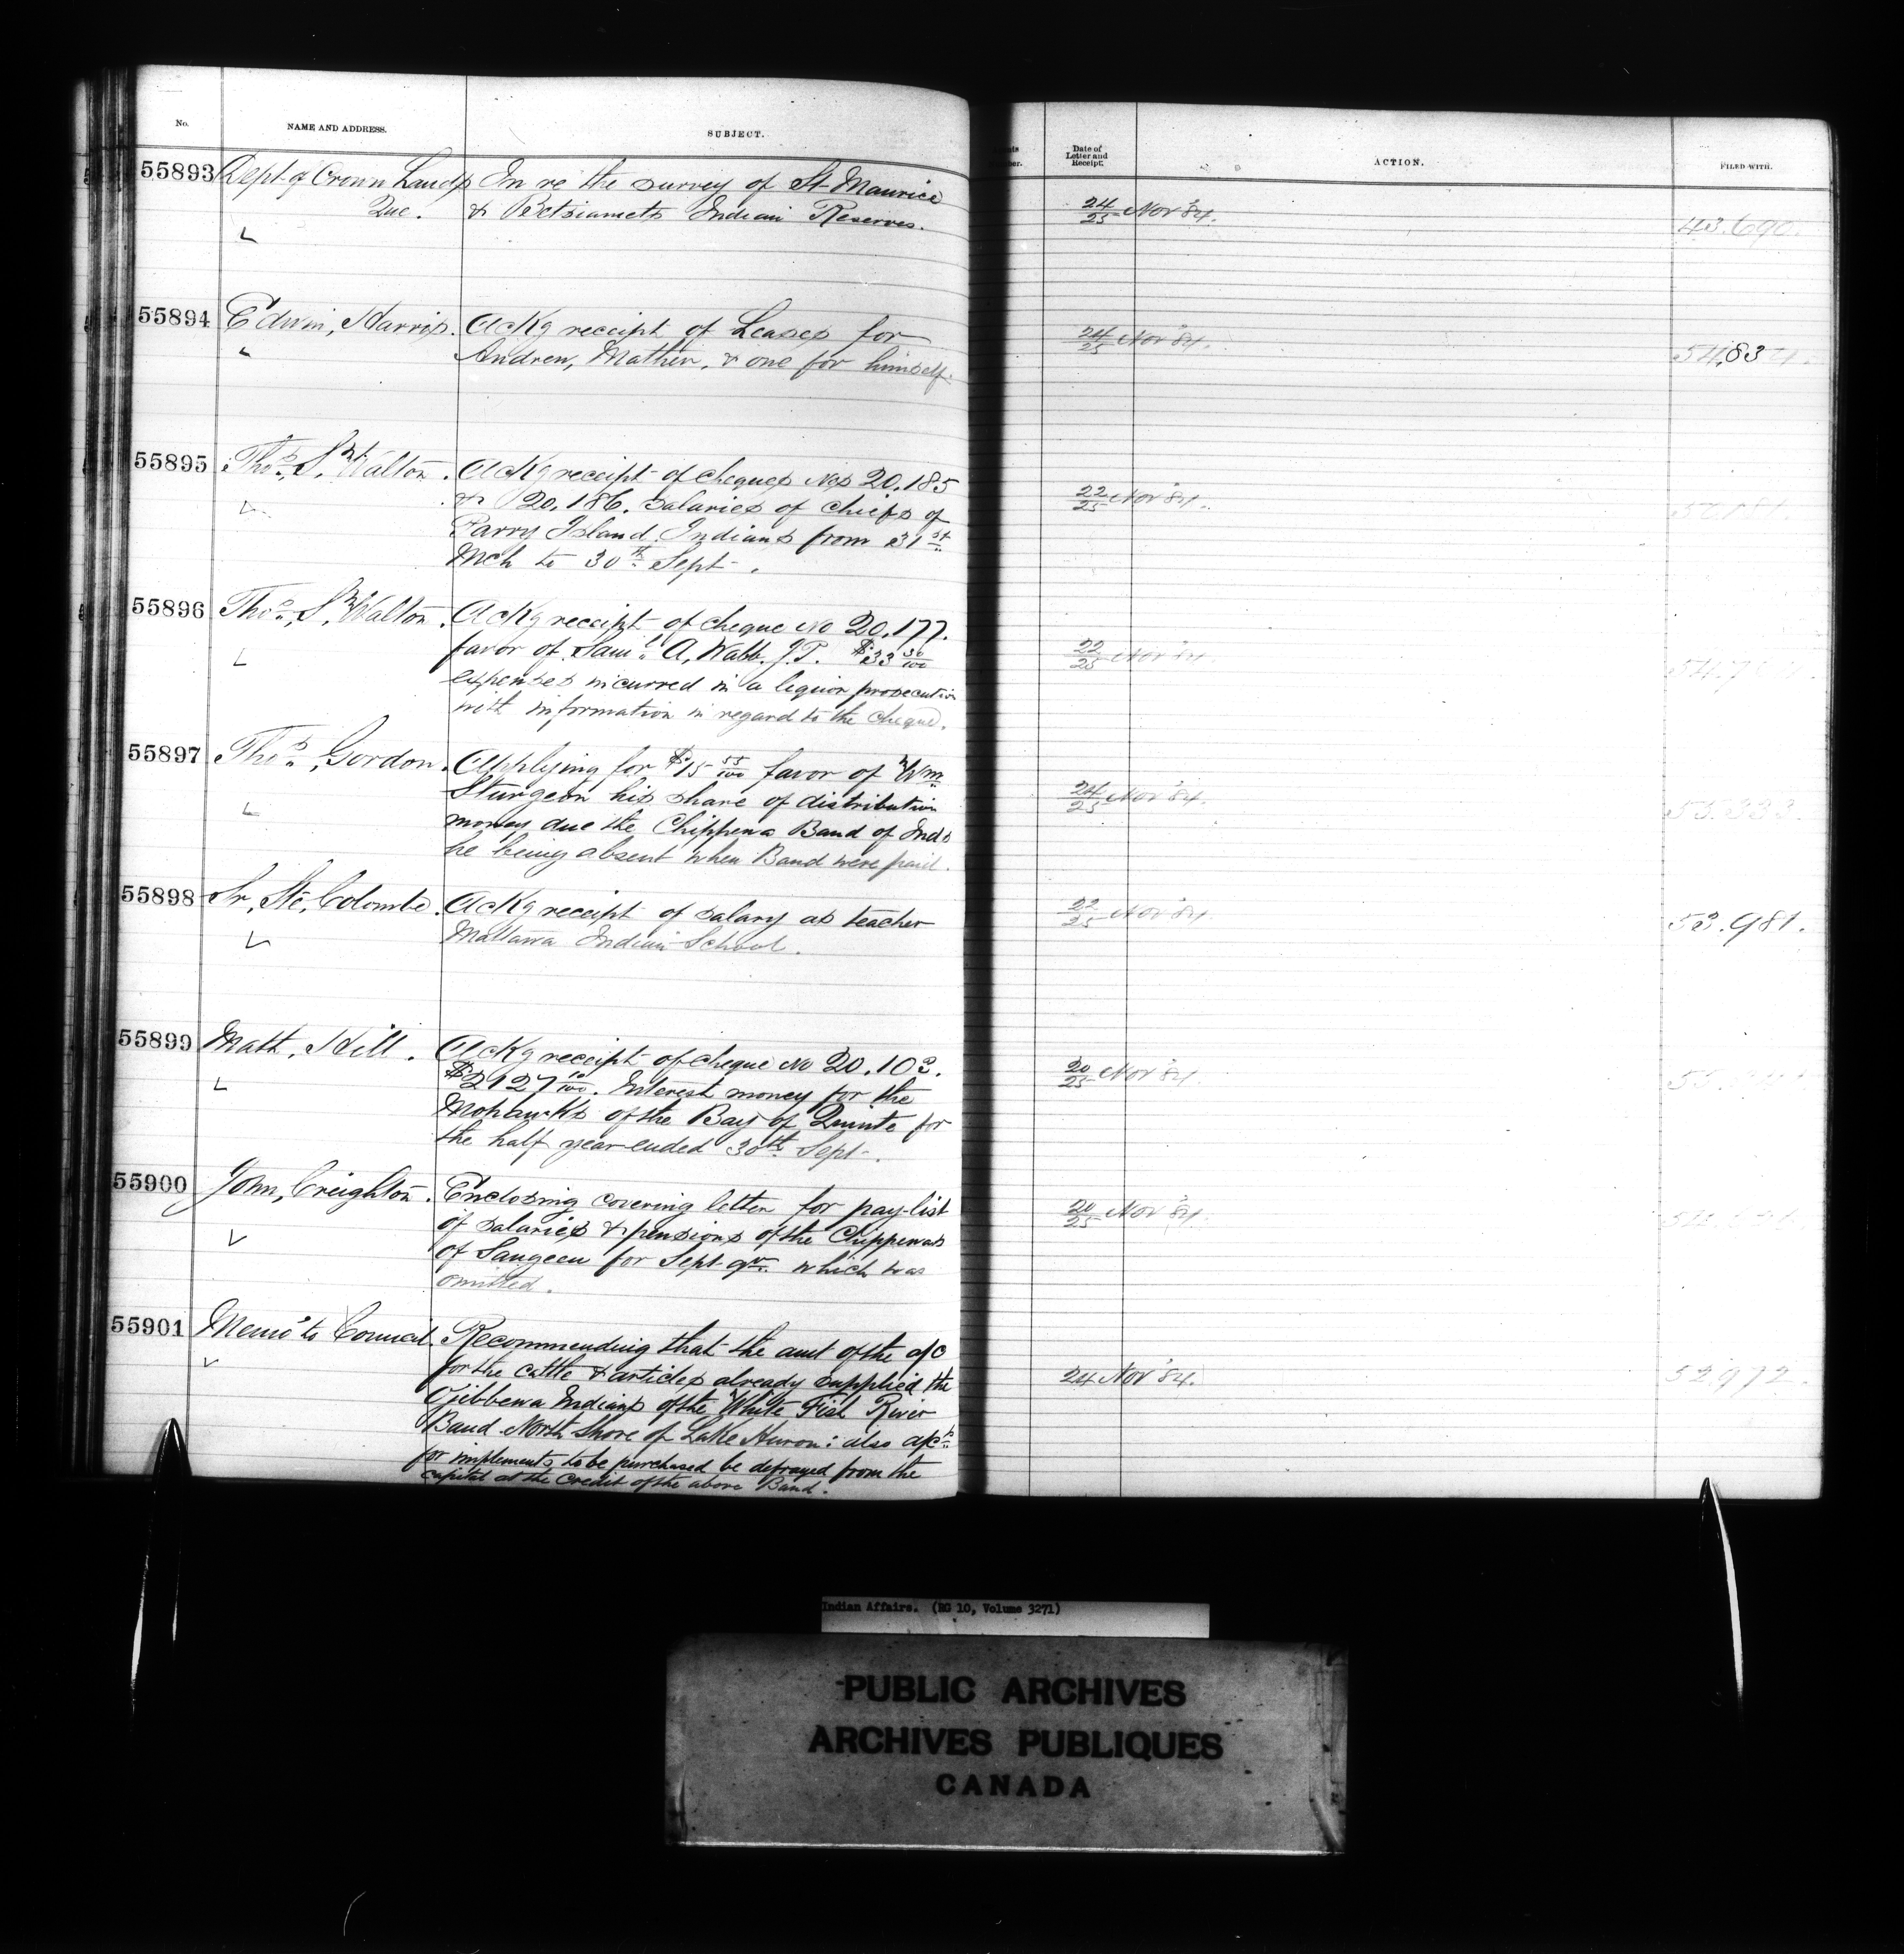 No. NAME AND ADDRESS. SUBJECT. Date of Letter and Receipt. ACTION. FILED WITH.
55893 Dept of Crown Lands In re the survey of St Maurice 24/25 Nov '84. 43.690.
Que. & Betsiamets Indian Reserves.
55894 Edwin, Harris. Ackg receipt of Leases for 24/25 Nov '84.
Andrew, Mather, & one for himself.
55895 Thos, S, Walton. Ackg receipt of cheques Nos 20.185 22/25 Nov '84.
& 20.186. salaries of Chiefs of
Parry Island Indians from 31st
Mch to 30th Sept.
55896 Thos, S, Walton. Ackg receipt of cheque No 20.177. 22/25 Nov '84.
favor of Saml A, Wabb. J.P. $33 50/100
expenses incurred in a liquor prosecution
with information in regard to the cheque.
55897 Thos, Gordon. Applying for $15 55/100 favor of Wm 24/25 Nov '84. 53.333.
Sturgeon his share of distribution
money due the Chippewa Band of Inds
he being absent when Band were paid.
55898 Sr, Ste, Colombe. Ackg receipt of salary as teacher 22/25 Nov '84. 53.981.
Mattawa Indian School.
55899 Matt, Hill. Ackg receipt of cheque No 20.103. 20/25 Nov '84.
$2127 10/100. Interest money for the
Mohawks of the Bay of Quinte for
the half year ended 30th Sept.
55900 John, Creighton. Enclosing covering letter for pay-list 20/25 Nov '84.
of salaries & pensions of the Chippewas
of Saugeen for Sept qr. which was
omitted.
55901 Memo to Council. Recommending that the amt of the a/c 24 Nov '84. 52.972.
for the cattle & articles already supplied the
Ojibbewa Indians of the White Fish River
Band North shore of Lake Huron: also a/cs
for implements to be purchased be defrayed from the
capital at the credit of the above Band.
Indian Affairs. (RG 10, Volume 3271)
PUBLIC ARCHIVES
ARCHIVES PUBLIQUES
CANADA